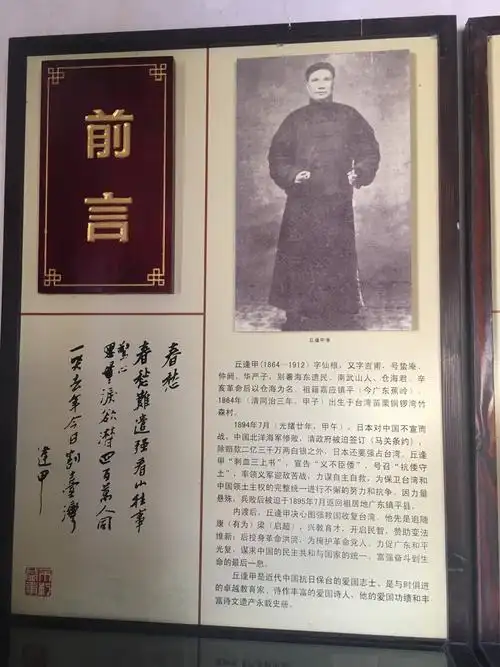 前言
丘逢甲像
春愁
春愁難遣强看山往事
驚心淚欲潸四百萬人同
一哭去年今日割臺灣
逢甲
丘逢甲(1864—1912)字仙根,又字吉甫,号蛰庵、
仲阏、华严子,别署海东遗民、南武山人、仓海君。辛
亥革命后以仓海为名。祖籍嘉应镇平(今广东蕉岭)。
1864年(清同治三年,甲子)出生于台湾苗栗铜锣湾竹
森村。
1894年7月(光绪廿年,甲午),日本对中国不宣而
战,中国北洋海军惨败,清政府被迫签订《马关条约》,
除赔款二亿三千万两白银之外,日本还要强占台湾。丘逢
甲“刺血三上书”,宣告“义不臣倭”,号召“抗倭守
土”,率领义军迎敌苦战,力谋自主自救,为保卫台湾和
中国领土主权的完整统一进行不懈的努力和抗争。因力量
悬殊,兵败后被迫于1895年7月返回祖居地广东镇平县。
内渡后,丘逢甲决心图强救国收复台湾。他先是追随
康(有为)梁(启超),兴教育才,开启民智,赞助变法
维新;后投身革命洪流,为掩护革命党人,力促广东和平
光复,谋求中国的民主共和与国家的统一、富强奋斗到生
命的最后一息。
丘逢甲是近代中国抗日保台的爱国志士、是与时俱进
的卓越教育家、诗作丰富的爱国诗人、他的爱国功绩和丰
富诗文遗产永载史册。